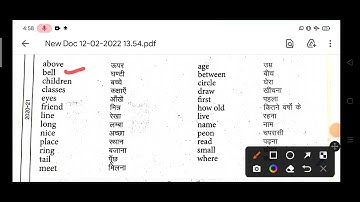 4:58
New Doc 12-02-2022 13.54.pdf
2020-21
above ऊपर
bell घण्टी
children बच्चे
classes कक्षाएँ
eyes आँखें
friend मित्र
line रेखा
long लम्बा
nice अच्छा
place स्थान
ring बजाना
tail पूँछ
meet मिलना
age उम्र
between बीच
circle घेरा
draw खींचना
first पहला
how old कितने वर्षों के
live रहना
name नाम
peon चपरासी
read पढ़ना
small
where